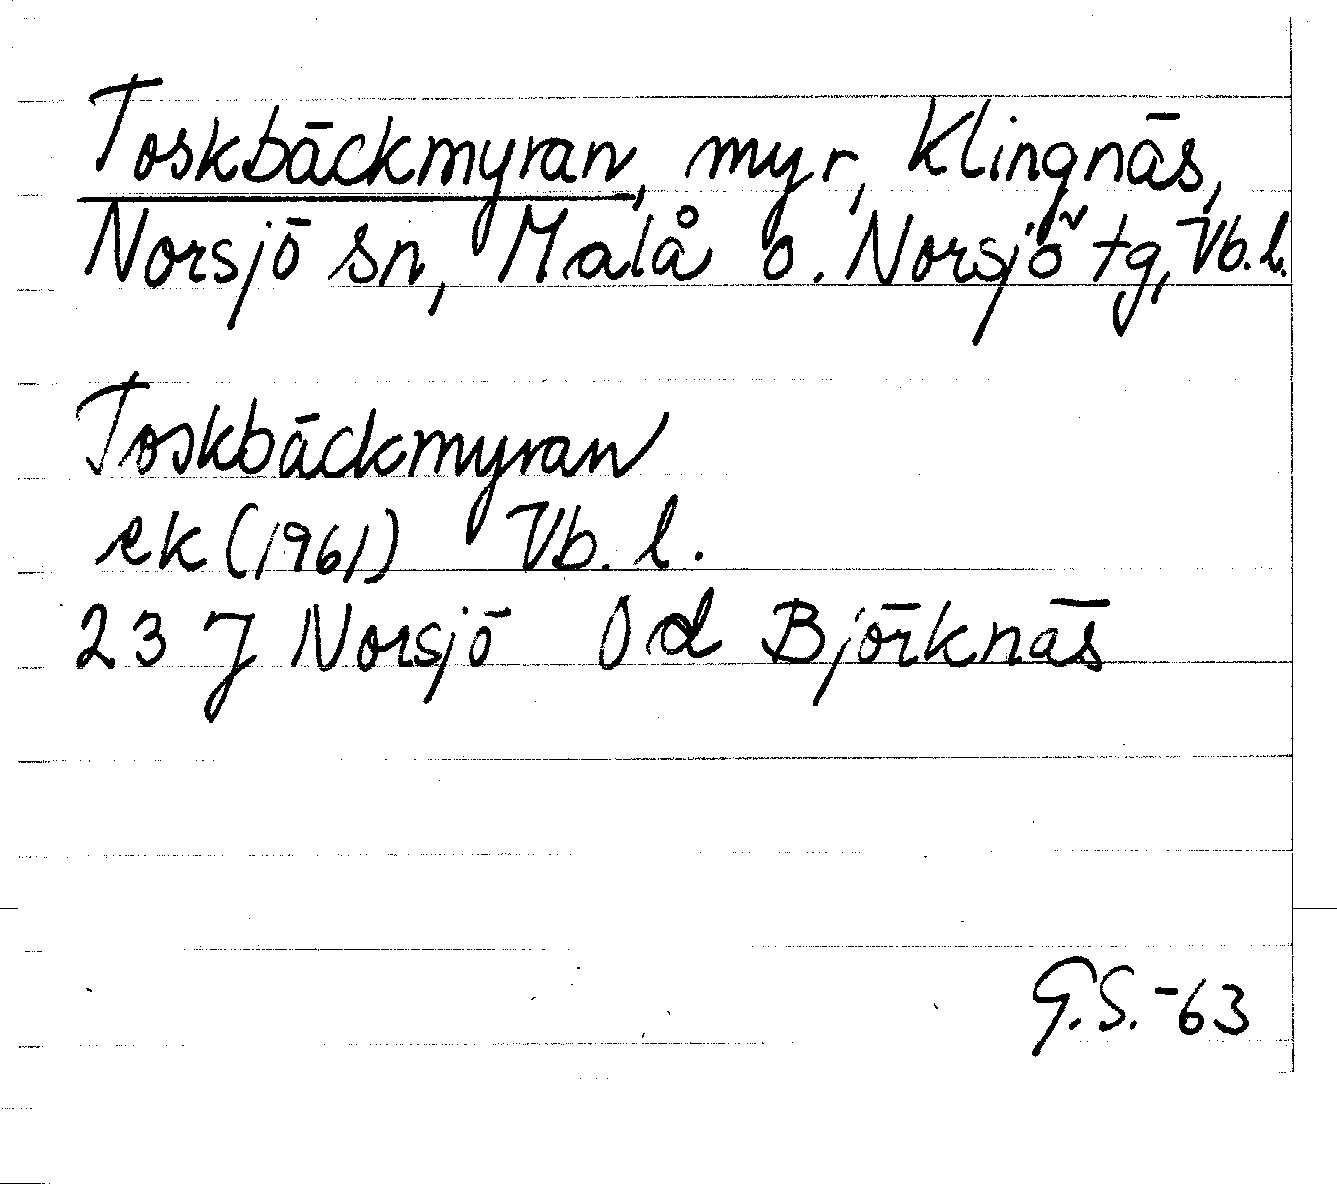 Toskbäckmyran, myr, Klingnäs,
Norsjö sn, Malå o. Norsjö tg, Vb. l.
Toskbäckmyran
ek (1961) Vb. l.
23 J Norsjö 0 d Björknäs
G.S. -63